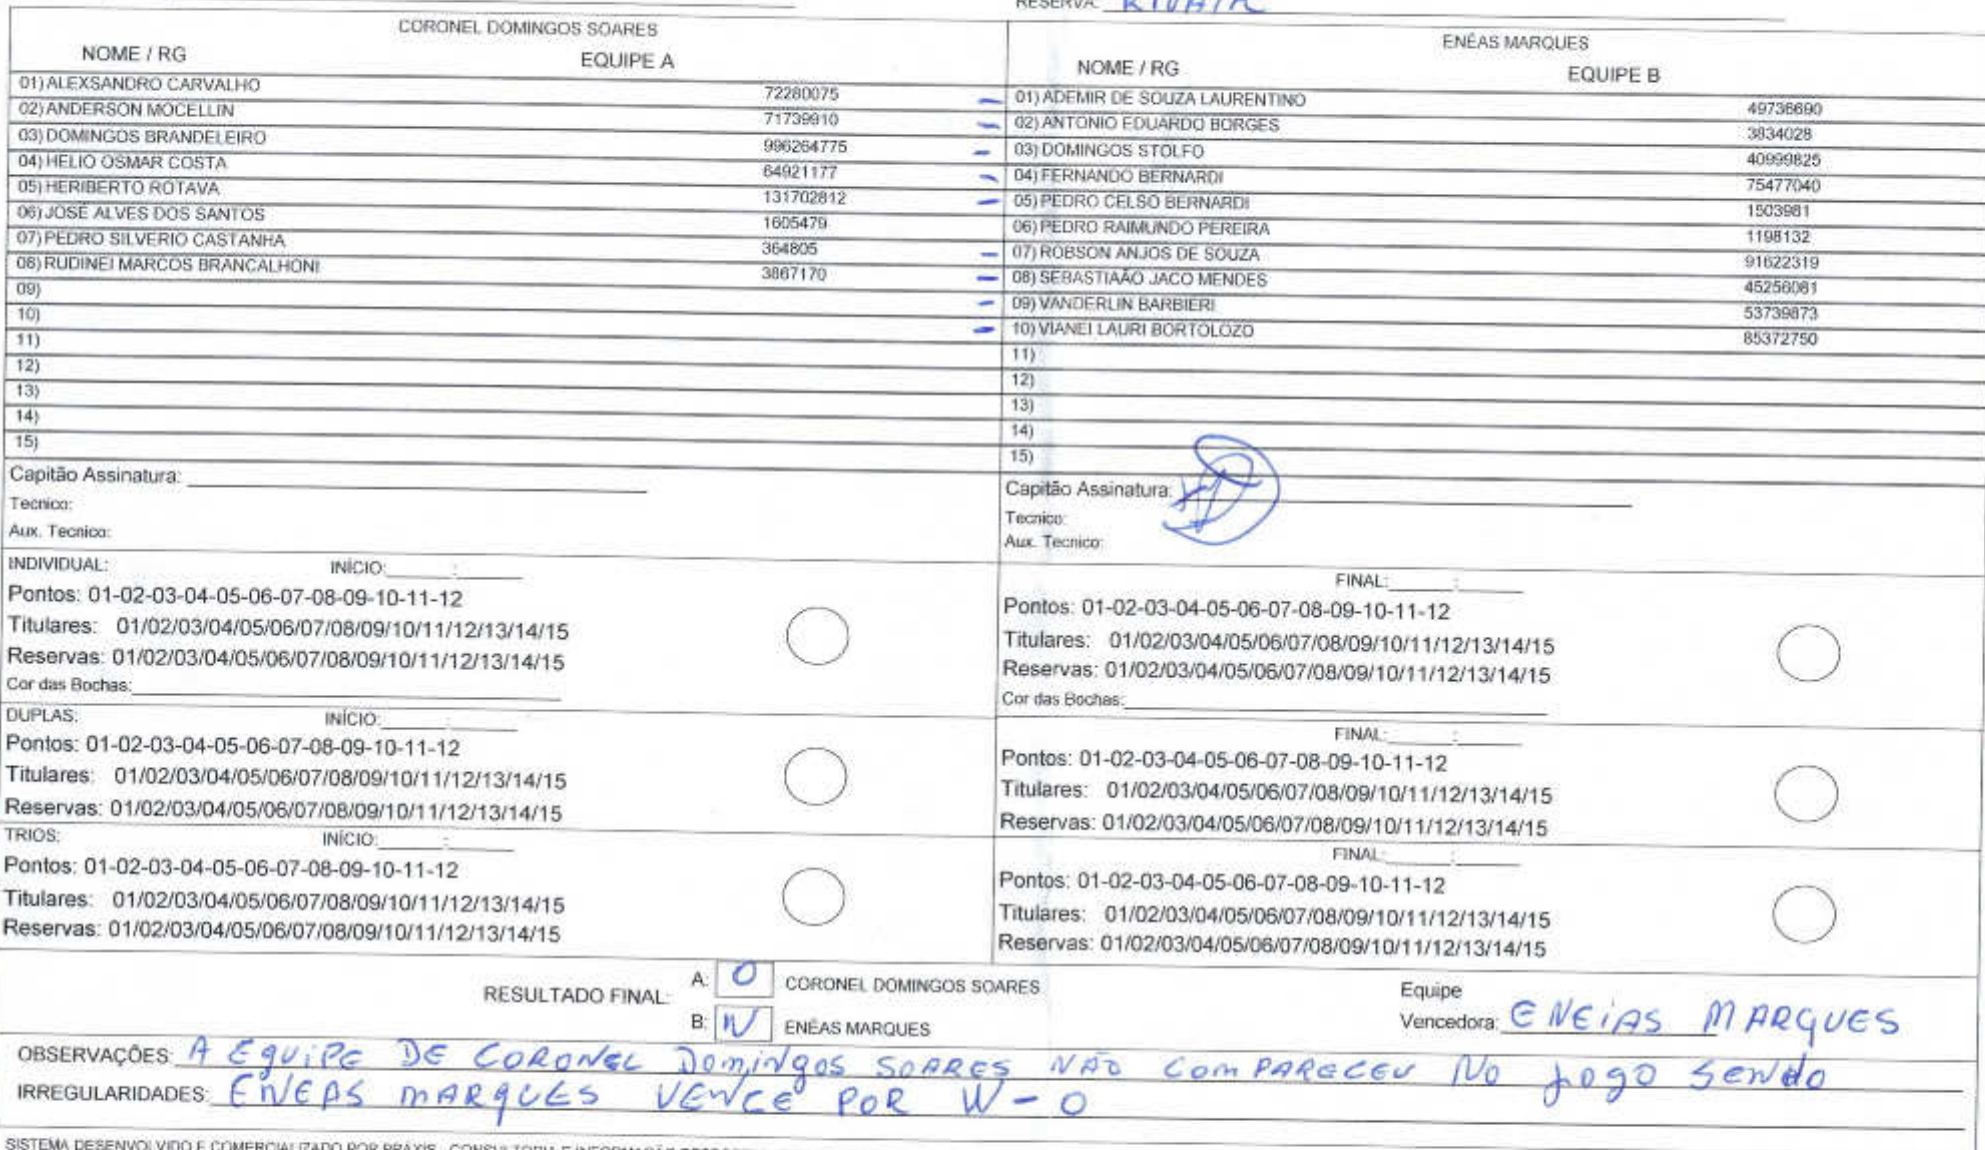 RESERVA:
CORONEL DOMINGOS SOARES
NOME / RG EQUIPE A
01) ALEXSANDRO CARVALHO 72280075
02) ANDERSON MOCELLIN 71739910
03) DOMINGOS BRANDELEIRO 996264775
04) HELIO OSMAR COSTA 64921177
05) HERIBERTO ROTAVA 131702812
06) JOSÉ ALVES DOS SANTOS 1605479
07) PEDRO SILVERIO CASTANHA 364805
08) RUDINEI MARCOS BRANCALHONI 3867170
09)
10)
11)
12)
13)
14)
15)
Capitão Assinatura:
Tecnico:
Aux. Tecnico:
ENÉAS MARQUES
NOME / RG EQUIPE B
01) ADEMIR DE SOUZA LAURENTINO 49736690
02) ANTONIO EDUARDO BORGES 3834028
03) DOMINGOS STOLFO 40999825
04) FERNANDO BERNARDI 75477040
05) PEDRO CELSO BERNARDI 1503981
06) PEDRO RAIMUNDO PEREIRA 1198132
07) ROBSON ANJOS DE SOUZA 91622319
08) SEBASTIAÃO JACO MENDES 45256081
09) VANDERLIN BARBIERI 53739873
10) VIANEI LAURI BORTOLOZO 85372750
11)
12)
13)
14)
15)
Capitão Assinatura:
Tecnico:
Aux. Tecnico:
INDIVIDUAL: INÍCIO: :
Pontos: 01-02-03-04-05-06-07-08-09-10-11-12
Titulares: 01/02/03/04/05/06/07/08/09/10/11/12/13/14/15
Reservas: 01/02/03/04/05/06/07/08/09/10/11/12/13/14/15
Cor das Bochas:
FINAL: :
Pontos: 01-02-03-04-05-06-07-08-09-10-11-12
Titulares: 01/02/03/04/05/06/07/08/09/10/11/12/13/14/15
Reservas: 01/02/03/04/05/06/07/08/09/10/11/12/13/14/15
Cor das Bochas:
DUPLAS: INÍCIO: :
Pontos: 01-02-03-04-05-06-07-08-09-10-11-12
Titulares: 01/02/03/04/05/06/07/08/09/10/11/12/13/14/15
Reservas: 01/02/03/04/05/06/07/08/09/10/11/12/13/14/15
FINAL: :
Pontos: 01-02-03-04-05-06-07-08-09-10-11-12
Titulares: 01/02/03/04/05/06/07/08/09/10/11/12/13/14/15
Reservas: 01/02/03/04/05/06/07/08/09/10/11/12/13/14/15
TRIOS: INÍCIO: :
Pontos: 01-02-03-04-05-06-07-08-09-10-11-12
Titulares: 01/02/03/04/05/06/07/08/09/10/11/12/13/14/15
Reservas: 01/02/03/04/05/06/07/08/09/10/11/12/13/14/15
FINAL: :
Pontos: 01-02-03-04-05-06-07-08-09-10-11-12
Titulares: 01/02/03/04/05/06/07/08/09/10/11/12/13/14/15
Reservas: 01/02/03/04/05/06/07/08/09/10/11/12/13/14/15
RESULTADO FINAL: A: O CORONEL DOMINGOS SOARES
B: W ENÉAS MARQUES
Equipe
Vencedora: ENEIAS MARQUES
OBSERVAÇÕES: A EQUIPE DE CORONEL DOMINGOS SOARES NÃO COMPARECEU NO JOGO SENDO
IRREGULARIDADES: ENEAS MARQUES VENCE POR W - O
SISTEMA DESENVOLVIDO E COMERCIALIZADO POR PRÁXIS - CONSULTORIA E INFORMAÇÃO